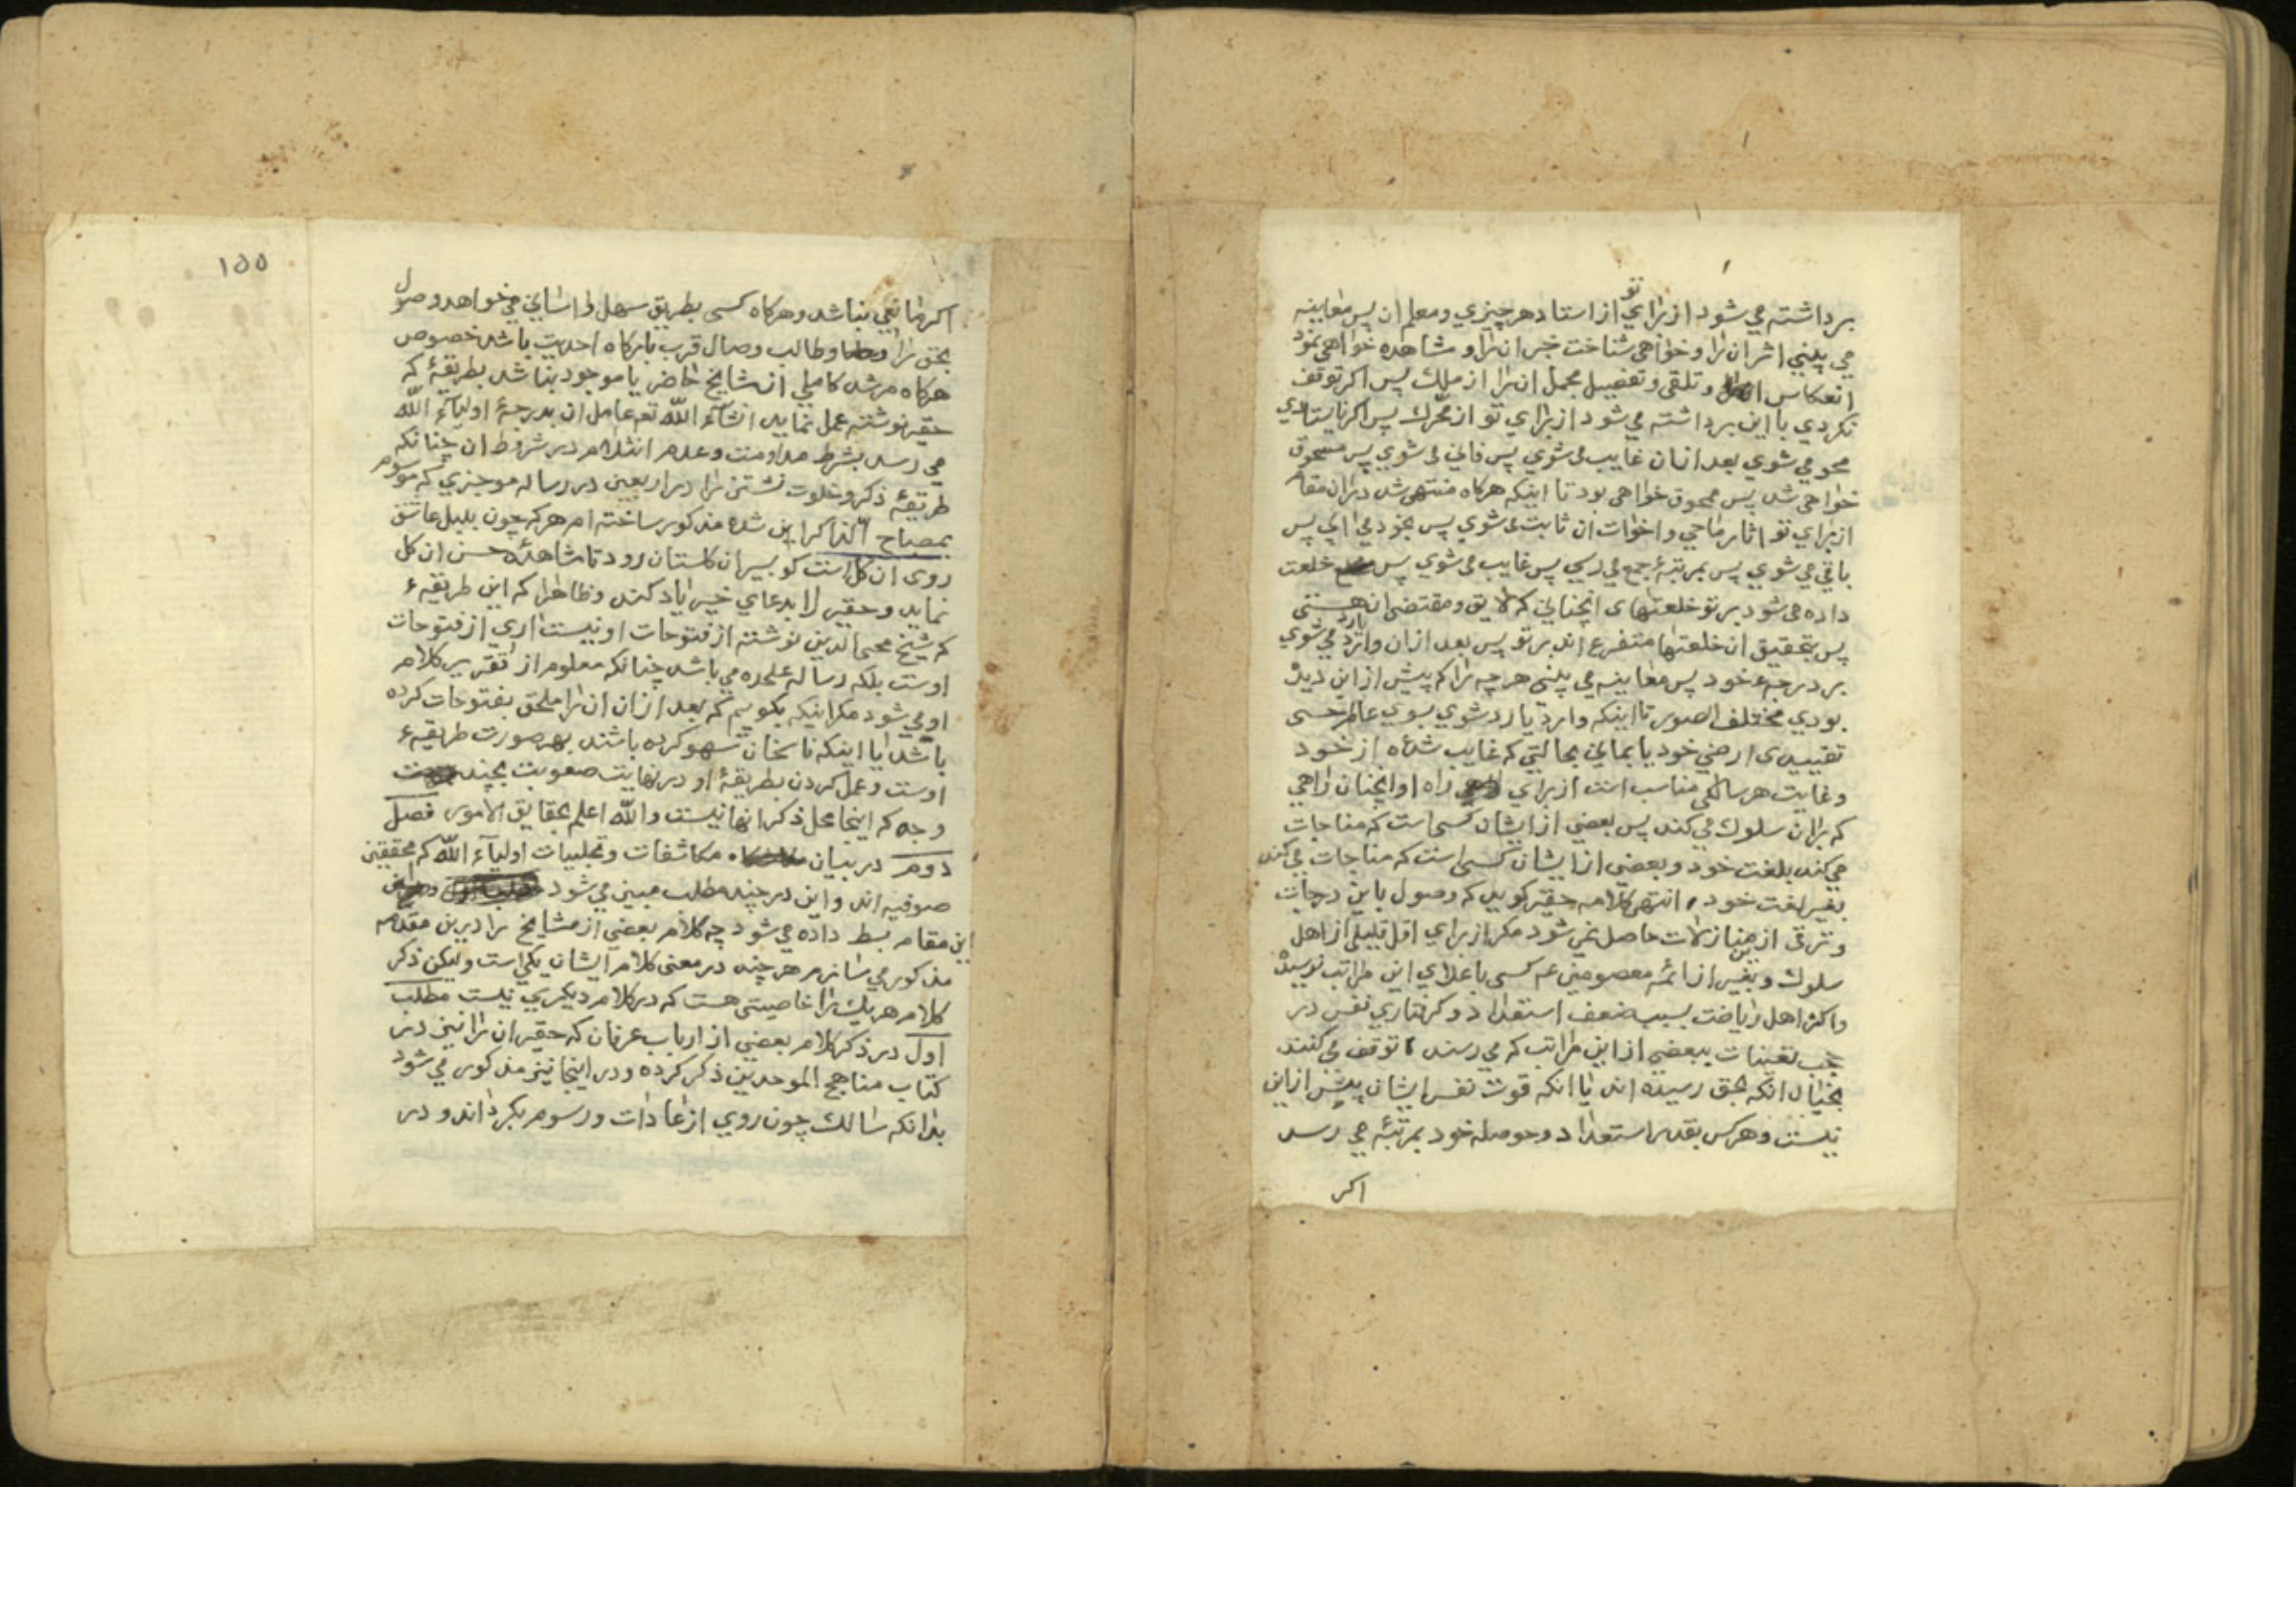 تو
برداشته می شود از برای از استاد هر چیزی و معلم ان پس معاینه
می بینی اثر ان را و خواهی شناخت خبر ان را و مشاهده خواهی نمود
انعکاس و تلقی و تفصیل مجمل ان را از ملك پس اکر توقف
نکردی با این برداشته می شود از برای تو از محرك پس اکر نایستادی
محو می شوی بعد از ان غایب می شوی پس فانی می شوی پس مسحوق
خواهی شد پس ممحوق خواهی بود تا اینکه هرکاه منتهی شد در ان مقام
از برای تو اثار ماحی و اخوات ان ثابت می شوی پس بخود می ایی پس
باقی می شوی پس بمرتبهٔ جمع می رسی پس غایب می شوی پس خلعت
داده می شود بر تو خلعتهای انچنانی که لایق و مقتضی ان هستی
پس بتحقیق ان خلعتها متفرع اند بر تو پس بعد از ان وارد می شوی
بر درجهء خود پس معاینه می بینی هر چه را که پیش از این دیده
بودی مختلف الصور تا اینکه وارد یا رد شوی بسوی عالم حسی
تقییدی ارضی خود یا بمانی بحالتی که غایب شدهٔ از خود
و غایت هر سالکی مناسب است از برای راه او انچنان راهی
که بر ان سلوك می کند پس بعضی از ایشان کسی است که مناجات
می کند بلغت خود و بعضی از ایشان کسی است که مناجات می کند
بغیر لغت خود انتهی کلامه حقیر کوید که وصول باین درجات
و ترقی از این منازلات حاصل نمی شود مکر از برای اقل قلیلی از اهل
سلوك و بغیر از ائمه معصومین عم کسی باعلای این مراتب نرسیده
و اکثر اهل ریاضت بسبب ضعف استعداد و کرفتاری نفس در
حجب تعینات ببعضی از این مراتب که می رسند توقف می کنند
بخیال انکه بحق رسیده اند یا انکه قوت نفس ایشان بیشتر از این
نیست و هر کس بقدر استعداد و حوصله خود بمرتبهٔ می رسد
اکر
۱۵۵
اکر مانعی نباشد و هرکاه کسی بطریق سهل و اسانی می خواهد وصول
بحق را و طالب وصال قرب بارکاه احدیت باشد خصوص
هرکاه مرشد کاملی از مشایخ حاضر یا موجود نباشد بطریقهٔ که
حقیر نوشته عمل نماید انشآء الله تعم عامل ان بدرجهٔ اولیآء الله
می رسد بشرط مداومت و عدم انثلام در شروط ان چنانکه
طریقهٔ ذکر و خلوت نشتن را در اربعین در رساله موجزی که موسوم
بمصباح الذاکراین شده مذکور ساخته ام هر که چون بلبل عاشق
روی ان کل است کو بسیر ان کلستان رود تا مشاهدهٔ حسن ان کل
نماید و حقیر را بدعای خیر یاد کند و ظاهرا که این طریقهء
که شیخ محیی الدین نوشته از فتوحات او نیست اری از فتوحات
اوست بلکه رساله علحده می باشد چنانکه معلوم از تقریر کلام
او می شود مکر اینکه بکویم که بعد از ان ان را ملحق بفتوحات کرده
باشد یا اینکه ناسخان سهو کرده باشند بهر صورت طریقهء
اوست و عمل کردن بطریقهٔ او در نهایت صعوبت بچند
وجه که اینجا محل ذکر انها نیست و الله اعلم بحقایق الامور فصل
دوم در بیان مکاشفات و تجلیات اولیآء الله که محققین
صوفیه اند و این در چند مطلب مبین می شود
این مقام بسط داده می شود چه کلام بعضی از مشایخ را در این مقدمه
مذکور می سازم هر چند در معنی کلام ایشان یکی است ولیکن ذکر
کلام هر یك را خاصیتی هست که در کلام دیکری نیست مطلب
اول در ذکر کلام بعضی از ارباب عرفان که حقیر ان را نیز در
کتاب مناهج الموحدین ذکر کرده و در اینجا نیز مذکور می شود
بدانکه سالك چون روی از عادات و رسوم بکرداند و در